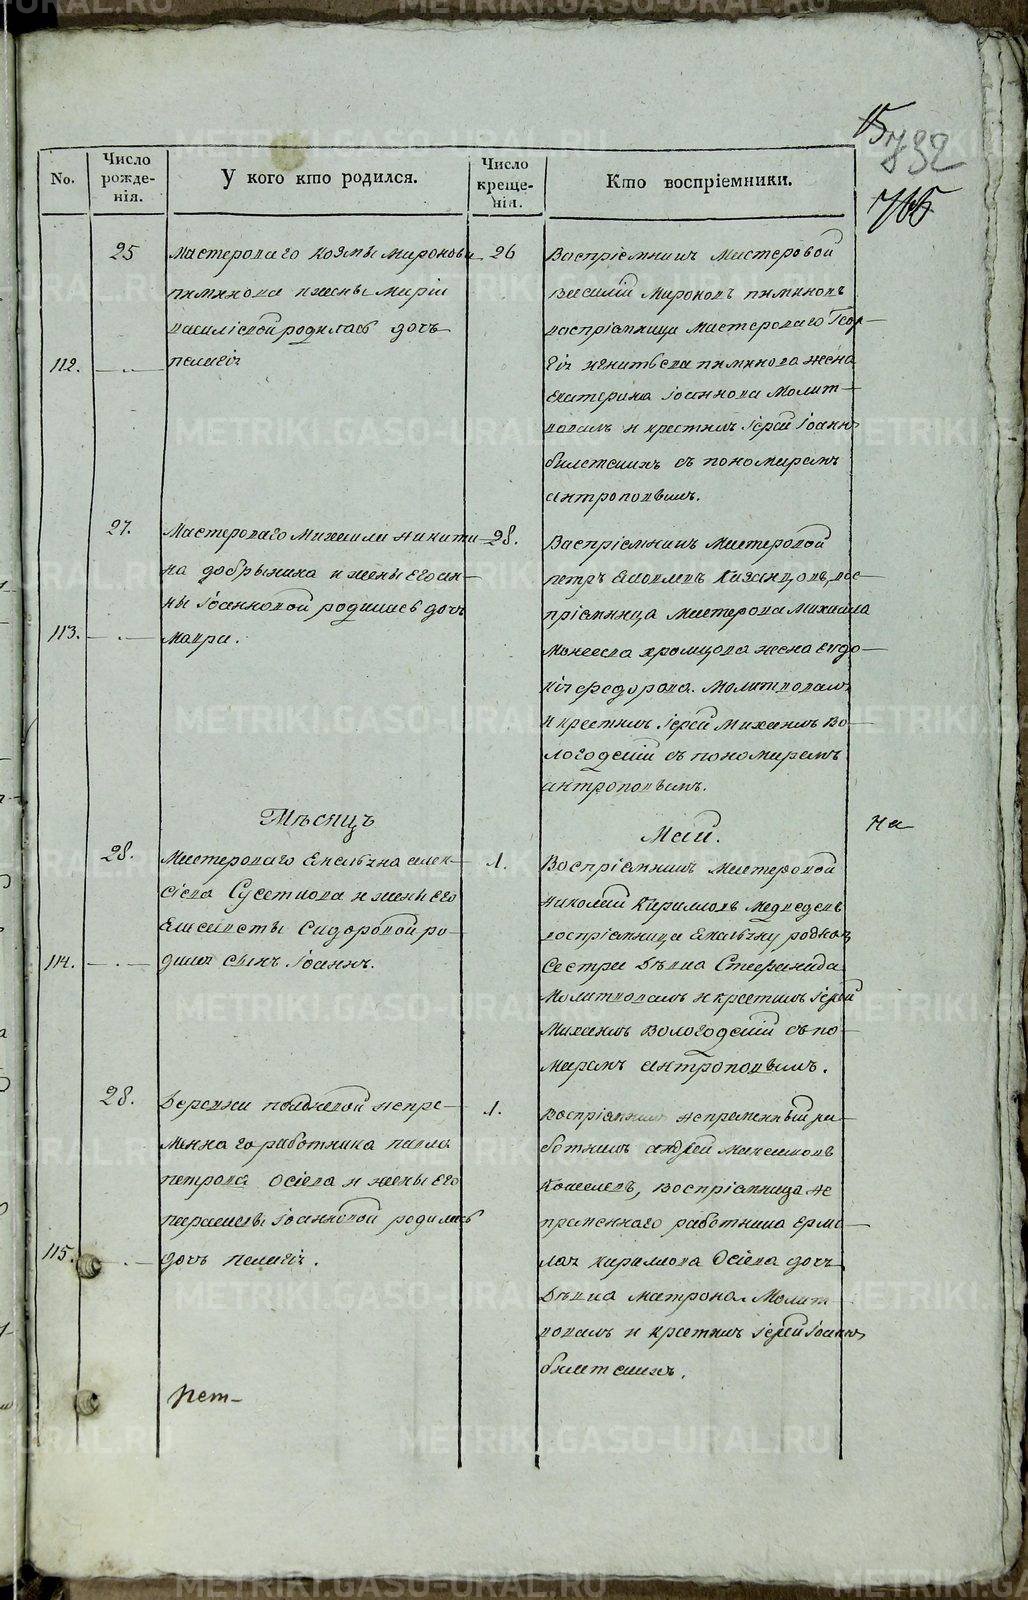 15
732
No.
Число рожде-нія.
У кого кто родился.
Число креще-нія.
Кто воспріемники.
25
Мастероваго Козмы Миронова
пиминова и жены Маріи
василіевой родилась дочь
112.
пелагія
26
Воспріемникъ Мастеровой
Василій Мироновъ пиминовъ
воспріемница Мастероваго Геор-
гія игнатьева пиминова жена
Екатерина Іоаннова Молит-
вовалъ и крестилъ іерей Іоаннъ
съ пономаремъ
антроповымъ.
27.
Мастероваго Михаила никити-
на добрынина и жены его ан-
ны Іоанновой родилась дочь
113.
Мавра.
28.
Воспріемникъ Мастеровой
петръ Казанцовъ, вос-
пріемница Мастерова Михаила
Моисеева хромцова жена Евдо-
кія федорова. Молитвовалъ
и крестилъ іерей Михаилъ Во-
логодскій съ пономаремъ
антроповымъ.
Мѣсяцъ
Май.
на
28.
Мастероваго Емельяна алек-
сіева и жены его
Елисаветы Сидоровой ро-
114.
дился сынъ Іоаннъ.
1.
Воспріемникъ Мастеровой
николай Кириловъ Медведевъ
воспріемница Емельяну родная
сестра Дѣвка Стефанида
Молитвовалъ и крестилъ іерей
Михаилъ Вологодскій съ по-
маремъ антроповымъ.
28.
Деревни непре-
меннаго работника павла
петрова Осіева и жены его
параскевы Іоанновой родилась
115.
дочь пелагія.
1.
Воспріемникъ непременный ра-
ботникъ андрей Максимовъ
Кошелевъ, воспріемница не
пременнаго работника Ерми-
лая кирилова Осіева дочь
Дѣвка Матрона. Молит
вовалъ и крестилъ іерей Іоаннъ
METRIKI.GASO-URAL.RU